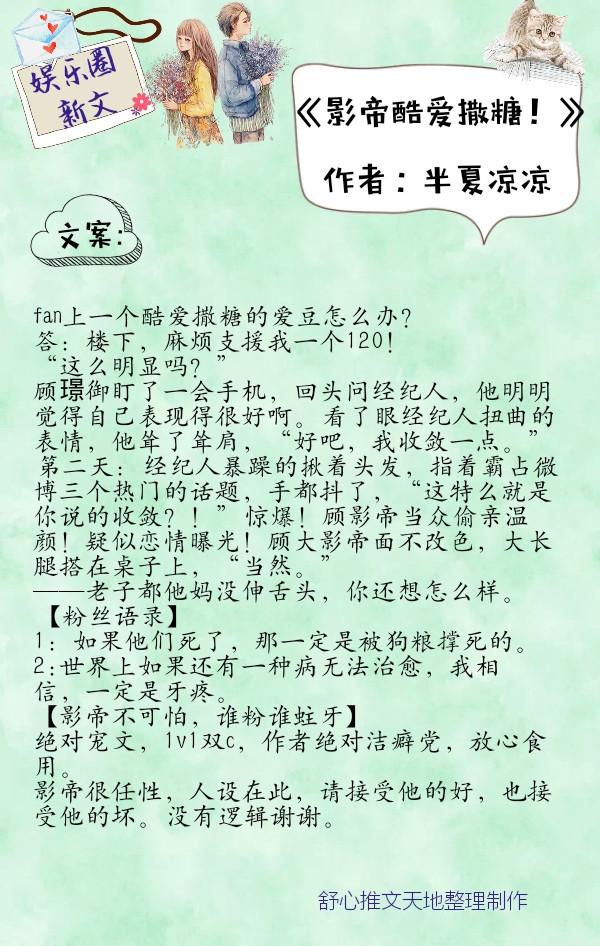 娱乐圈
新文
《影帝酷爱撒糖！》
作者：半夏凉凉
文案：
fan上一个酷爱撒糖的爱豆怎么办？
答：楼下，麻烦支援我一个120！
“这么明显吗？”
顾璟御盯了一会手机，回头问经纪人，他明明
觉得自己表现得很好啊。看了眼经纪人扭曲的
表情，他耸了耸肩，“好吧，我收敛一点。”
第二天：经纪人暴躁的揪着头发，指着霸占微
博三个热门的话题，手都抖了，“这特么就是
你说的收敛？！”惊爆！顾影帝当众偷亲温
颜！疑似恋情曝光！顾大影帝面不改色，大长
腿搭在桌子上，“当然。”
——老子都他妈没伸舌头，你还想怎么样。
【粉丝语录】
1：如果他们死了，那一定是被狗粮撑死的。
2:世界上如果还有一种病无法治愈，我相
信，一定是牙疼。
【影帝不可怕，谁粉谁蛀牙】
绝对宠文，1v1双c，作者绝对洁癖党，放心食
用。
影帝很任性，人设在此，请接受他的好，也接
受他的坏。没有逻辑谢谢。
舒心推文天地整理制作